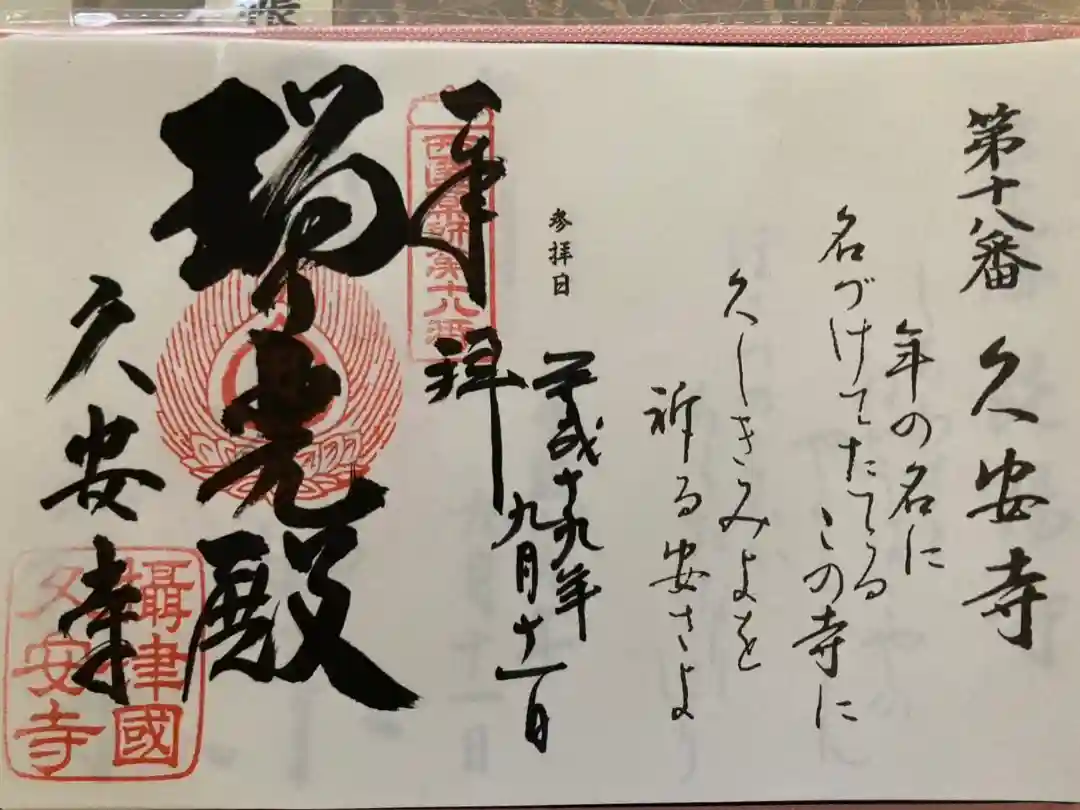 第十八番 久安寺
年の名に
名づけてたてるこの寺に
久しきみよを
祈る安さよ
参拝日
平成十九年
九月十一日
奉拝
西國薬師第十八番
瑞光殿
久安寺
攝津國
久安寺